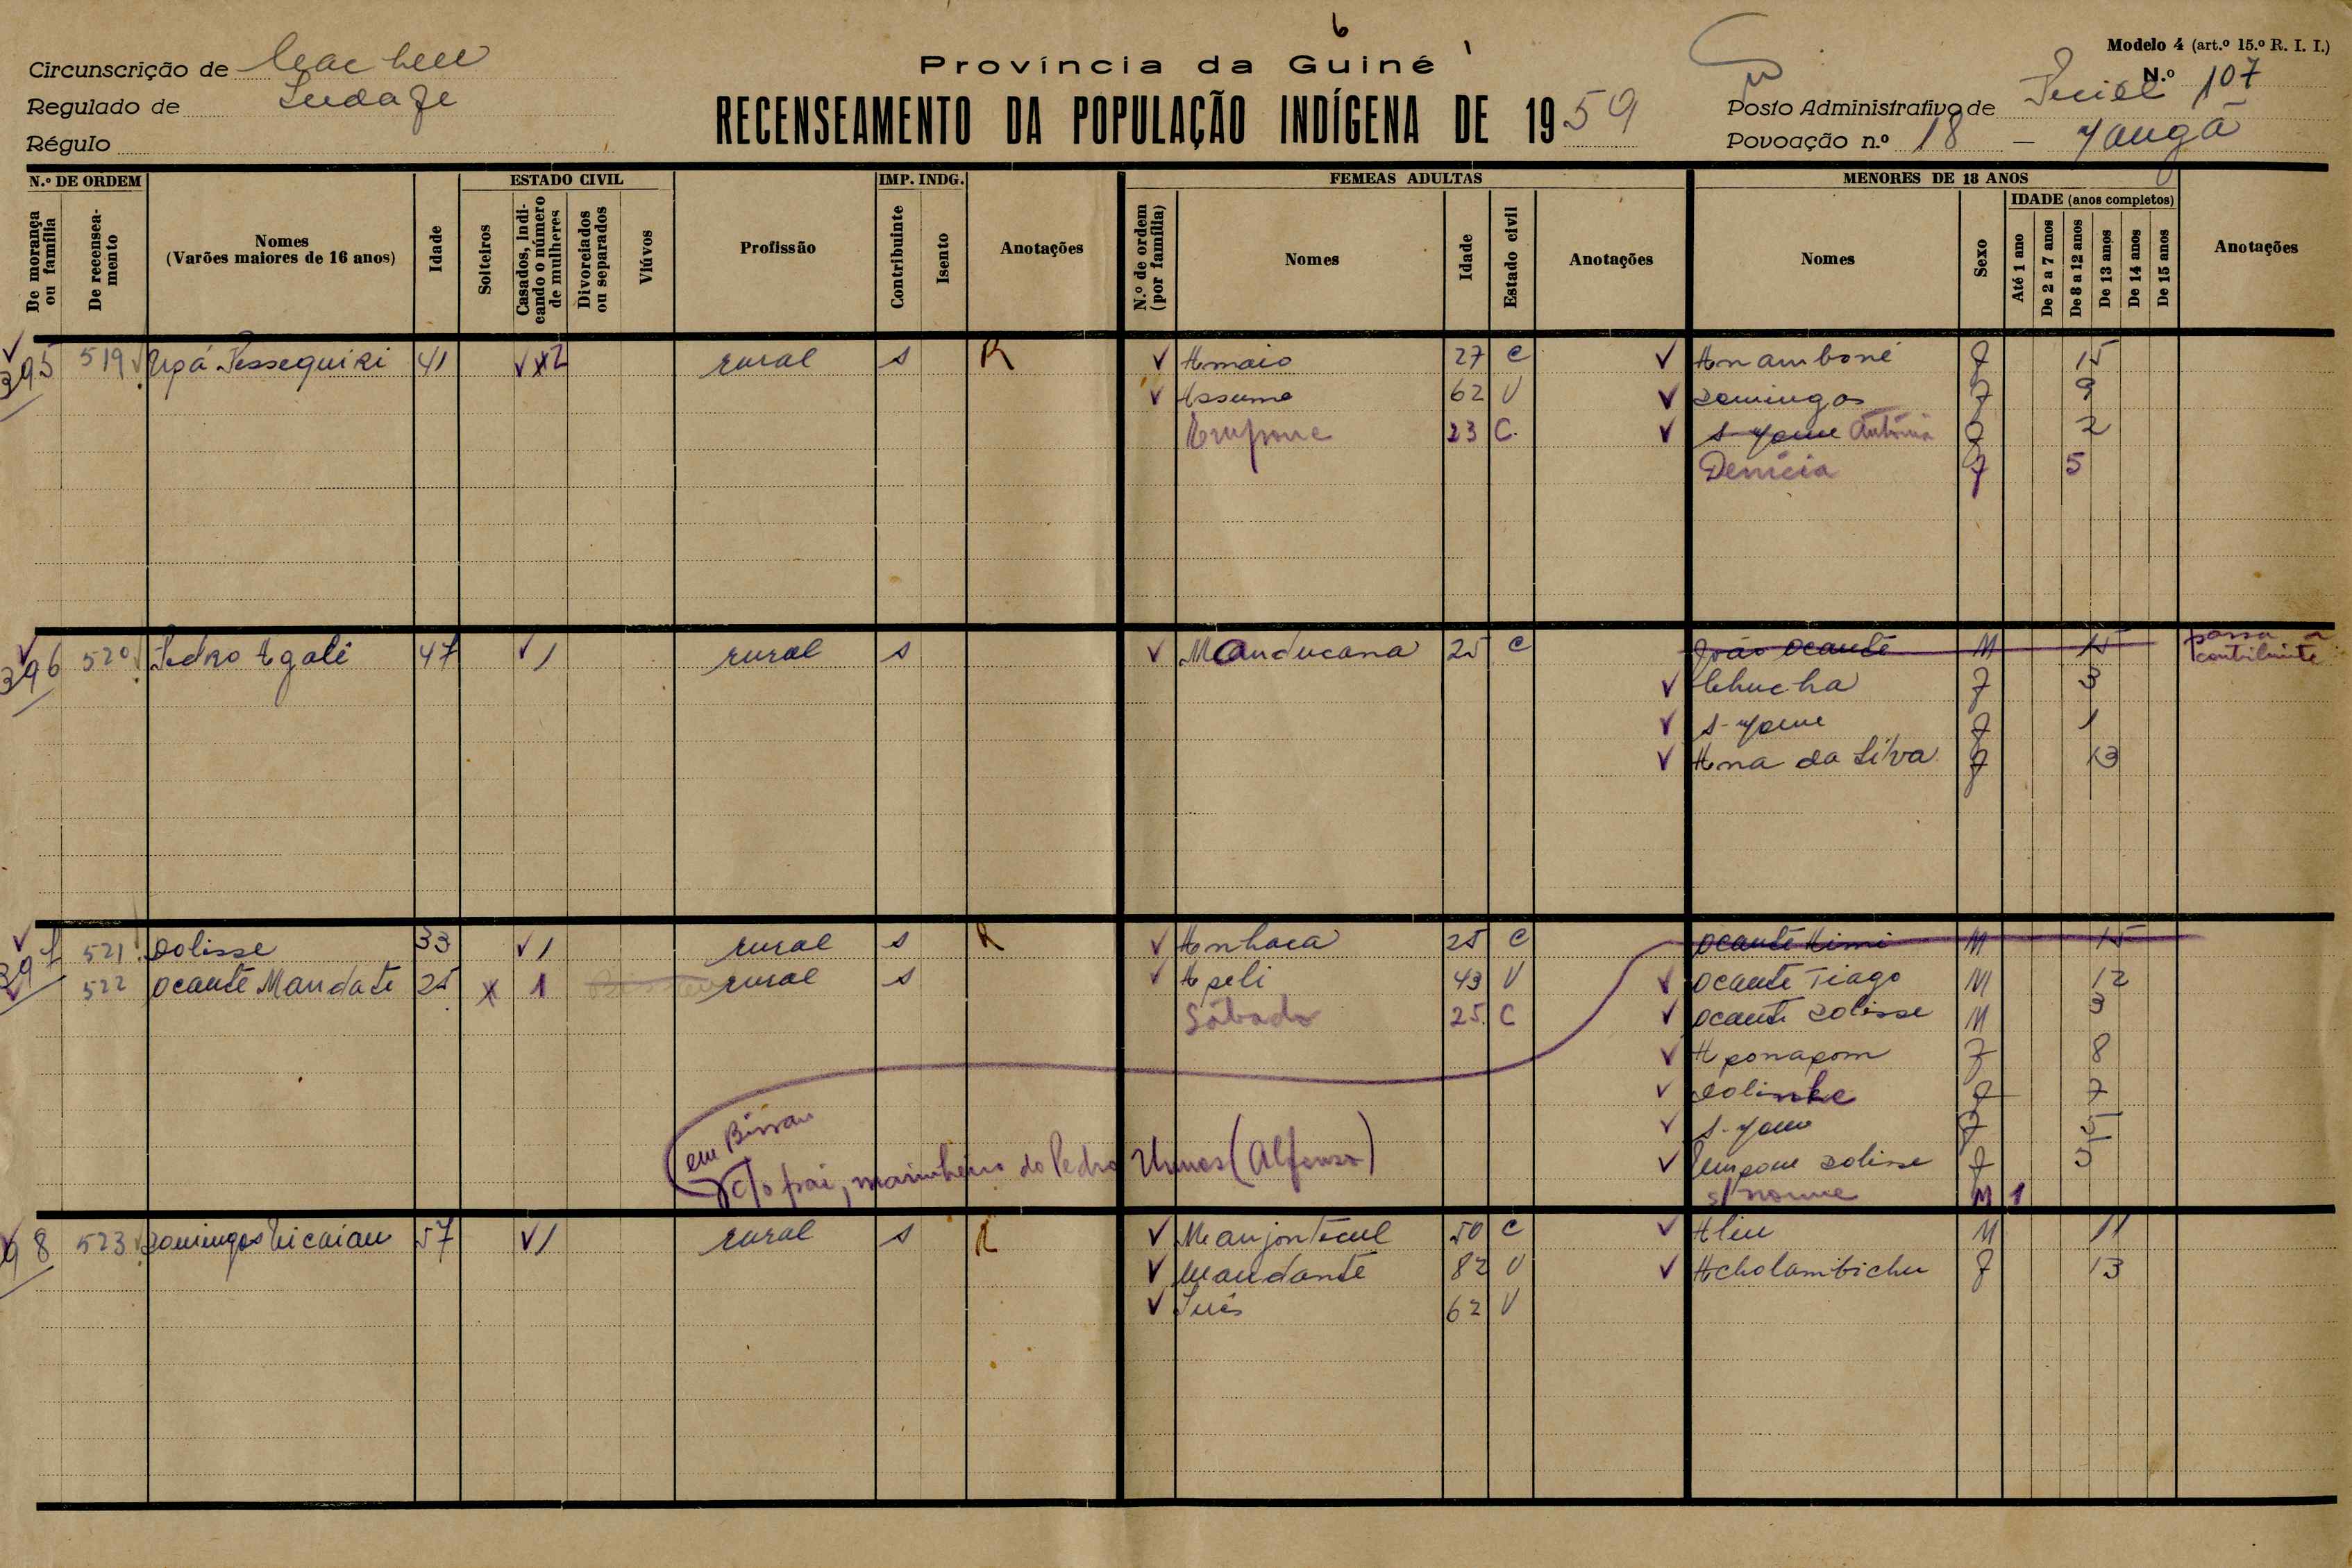 6
Província da Guiné
Modelo 4 (art.º 15.º R. I. I.)
N.º 107
Circunscrição de Cacheu
Regulado de
Régulo
RECENSEAMENTO DA POPULAÇÃO INDÍGENA DE 1959
Posto Administrativo de
Povoação n.º 18 –
N.º DE ORDEM
De morança ou família
De recenseamento
Nomes
(Varões maiores de 16 anos)
Idade
ESTADO CIVIL
Solteiros
Casados, indicando o número de mulheres
Divorciados ou separados
Viúvos
Profissão
IMP. INDG.
Contribuinte
Isento
Anotações
FEMEAS ADULTAS
N.º de ordem (por família)
Nomes
Idade
Estado civil
Anotações
MENORES DE 18 ANOS
Nomes
Sexo
IDADE (anos completos)
Até 1 ano
De 2 a 7 anos
De 8 a 12 anos
De 13 anos
De 14 anos
De 15 anos
Anotações
395 519 41 2 rural s R
Amaio 27 C
Assumo 62 V
23 C.
Anamboné f 15
Domingas f 9
s-yome Antónia f 2
f 5
396 520 Pedro Agali 47 1 rural s
Manducana 25 C
João Ocante M 15 passa a contribuinte
Chucha f 3
s-yome f 1
Ana da Silva f 13
397 521 Dolisse 33 1 rural s R
522 Ocante Mandate 25 x 1 rural s
Anhaca 25 C
Apeli 43 V
Sábado 25. C
Ocante Mimi M 15
Ocante Tiago M 12
Ocante Dolisse M 3
Aponapom f 8
f 7
s-yome f 5
Dolisse f 5
s/nome M 1
em Bissau
c/o pai, marinheiro do Pedro (Alfonso)
98 523 Domingos 57 1 rural s R
Manjontecul 50 C
Mandante 82 V
Inês 62 V
Aliu M 11
Acholambichu f 13